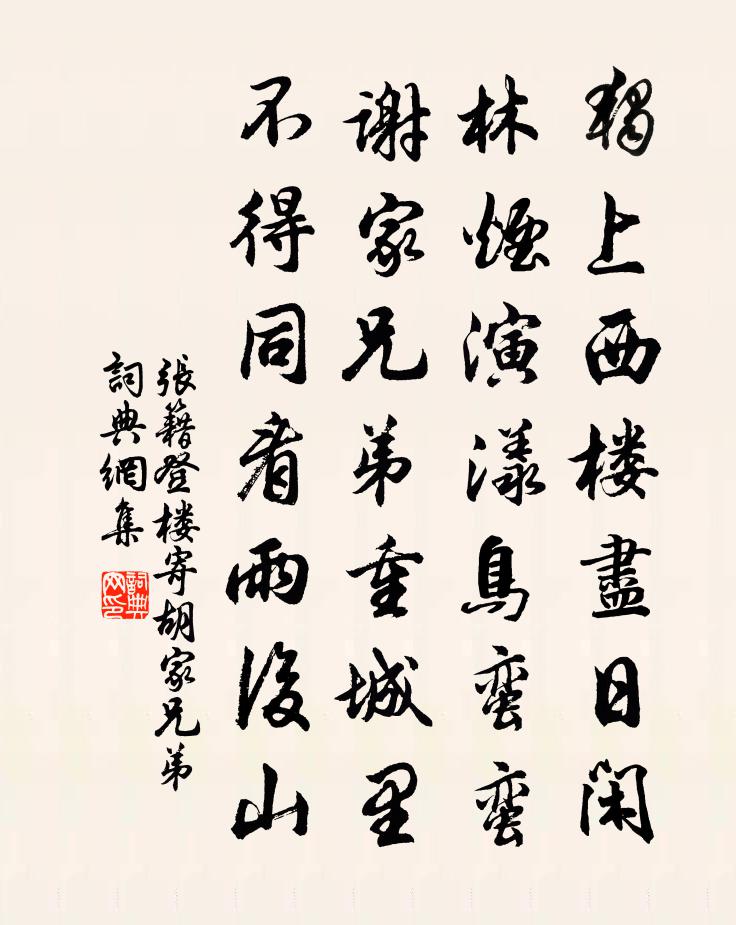 獨上西楼盡日閑
林煙演漾鳥蠻蠻
謝家兄弟重城里
不得同看雨後山
張籍登楼寄胡家兄弟
詞典網集
詞典网印